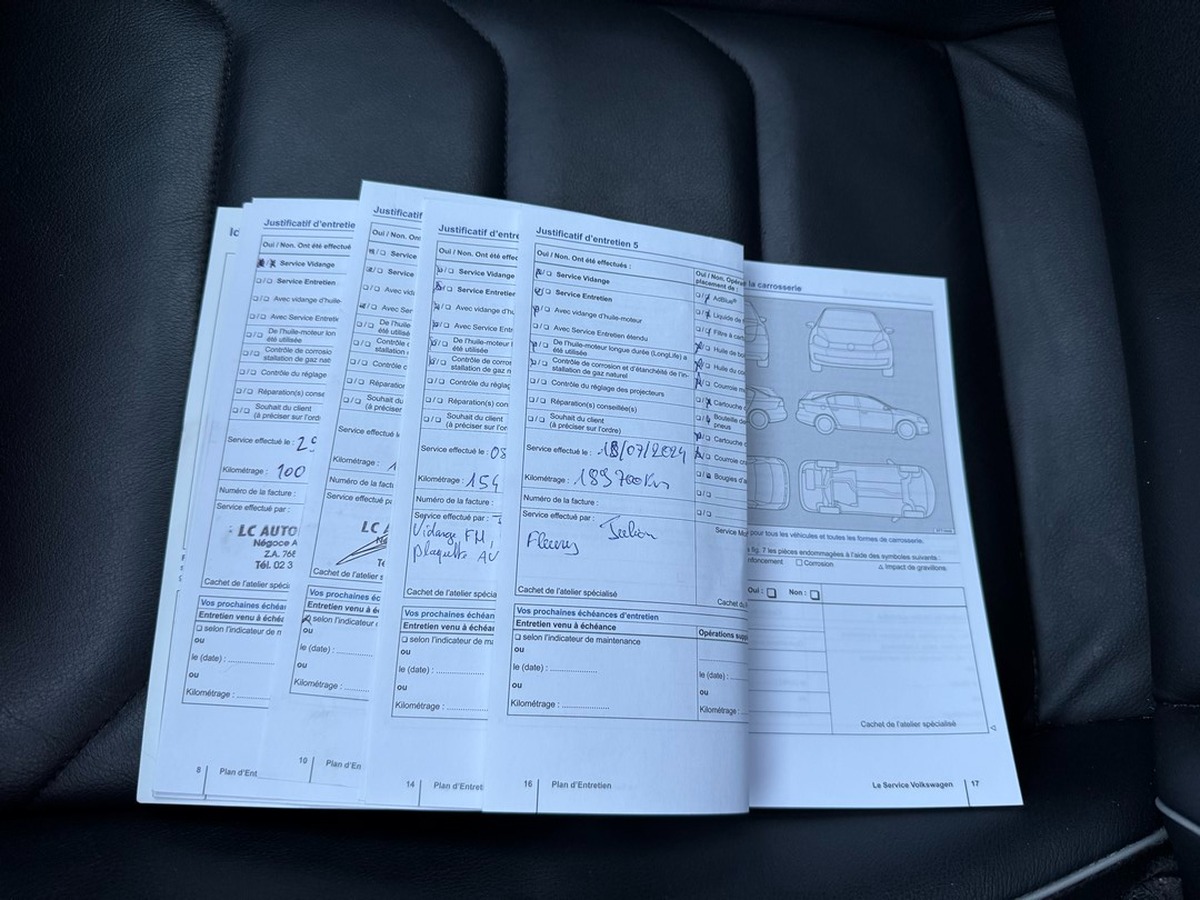 Ic
Justificatif d'entretie
Oui / Non. Ont été effectué
Service Vidange
Service Entretien
Avec vidange d'huile-
Avec Service Entreti
De l'huile-moteur lon
été utilisée
Contrôle de corrosio
stallation de gaz nat
Contrôle du réglage
Réparation(s) conse
Souhait du client
(à préciser sur l'ordr
Service effectué le : 2
Kilométrage : 100
Numéro de la facture :
Service effectué par :
LC AUTO
Négoce A
Z.A. 768
Tél. 02 3
Cachet de l'atelier spéci
Vos prochaines échéan
Entretien venu à échéa
selon l'indicateur de m
ou
le (date) :
ou
Kilométrage :
8 | Plan d'Ent
Justificatif
Oui / Non. Ont
Service
Service
Avec vid
Avec Ser
De l'huile
été utilisé
Contrôle
stallation
Contrôle
Réparation
Souhait d
(à précise
Service effectué le
Kilométrage :
Numéro de la factu
Service effectué pa
LC A
Né
Cachet de l'atelier s
Vos prochaines éc
Entretien venu à éc
selon l'indicateur
ou
le (date) :
ou
Kilométrage :
10 | Plan d'En
Justificatif d'entre
Oui / Non. Ont été effec
Service Vidange
Service Entretien
Avec vidange d'hu
Avec Service Entre
De l'huile-moteur l
été utilisée
Contrôle de corros
stallation de gaz n
Contrôle du réglag
Réparation(s) con
Souhait du client
(à préciser sur l'or
Service effectué le : 03
Kilométrage : 154
Numéro de la facture :
Service effectué par :
Vidange FM,
plaquette AV
Cachet de l'atelier spécia
Vos prochaines échéa
Entretien venu à échéa
selon l'indicateur de ma
ou
le (date) :
ou
Kilométrage :
14 | Plan d'Entreti
Justificatif d'entretien 5
Oui / Non. Ont été effectués :
Service Vidange
Service Entretien
Avec vidange d'huile-moteur
Avec Service Entretien étendu
De l'huile-moteur longue durée (LongLife) a
été utilisée
Contrôle de corrosion et d'étanchéité de l'in-
stallation de gaz naturel
Contrôle du réglage des projecteurs
Réparation(s) conseillée(s)
Souhait du client
(à préciser sur l'ordre)
Service effectué le : 18/07/2024
Kilométrage : 189700Km
Numéro de la facture :
Service effectué par :
Fleury Julien
Cachet de l'atelier spécialisé
Vos prochaines échéances d'entretien
Entretien venu à échéance
selon l'indicateur de maintenance
ou
le (date) :
ou
Kilométrage :
16 | Plan d'Entretien
Oui / Non. Opérat
placement de :
AdBlue®
Liquide de
Filtre à carb
Huile de bo
Huile du co
Courroie m
Cartouche
Bouteille de
pneus
Cartouche d
Courroie cra
Bougies d'a
Service Mob
Cachet du
Opérations supp
le (date) :
ou
Kilométrage :
la carrosserie
pour tous les véhicules et toutes les formes de carrosserie.
fig. 7 les pièces endommagées à l'aide des symboles suivants :
nfoncement Corrosion Impact de gravillons.
Oui : Non :
Cachet de l'atelier spécialisé
Le Service Volkswagen | 17